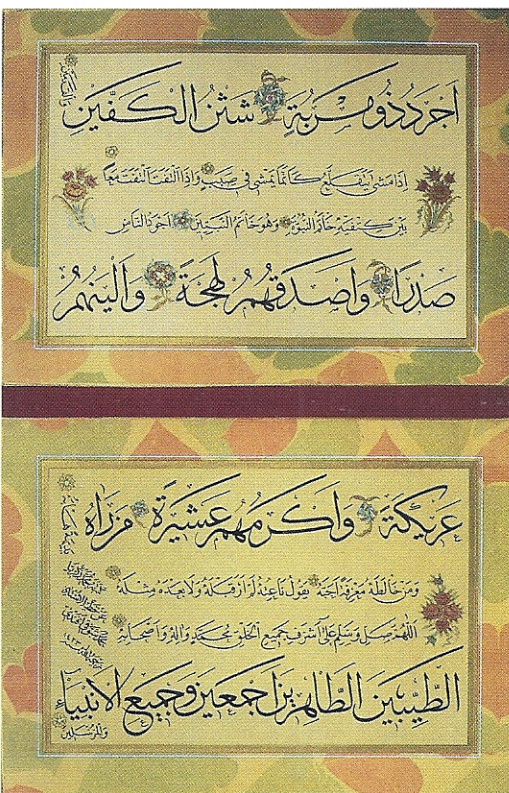 اَجْرَدُ ذُو مَسْرُبَةٍ شَثْنُ الْكَفَّيْنِ
وَالْقَدَمَيْنِ
اِذَا مَشٰى يَتَقَلَّعُ كَاَنَّمَا يَمْشِى فِى صَبَبٍ وَاِذَا الْتَفَتَ الْتَفَتَ مَعًا
بَيْنَ كَتِفَيْهِ خَاتَمُ النُّبُوَّةِ وَهُوَ خَاتَمُ النَّبِيِّينَ اَجْوَدُ النَّاسِ
صَدْرًا وَاَصْدَقُهُمْ لَهْجَةً وَاَلْيَنُهُمْ
عَرِيكَةً وَاَكْرَمُهُمْ عَشِيرَةً مَنْ رَاٰهُ
بَدِيهَةً هَابَهُ
وَمَنْ خَالَطَهُ مَعْرِفَةً اَحَبَّهُ يَقُولُ نَاعِتُهُ لَمْ اَرَ قَبْلَهُ وَلَا بَعْدَهُ مِثْلَهُ
اَللّٰهُمَّ صَلِّ وَسَلِّمْ عَلٰى اَشْرَفِ جَمِيعِ الْخَلْقِ مُحَمَّدٍ وَاٰلِهِ وَاَصْحَابِهِ
الطَّيِّبِينَ الطَّاهِرِينَ اَجْمَعِينَ وَجَمِيعِ الْاَنْبِيَاءِ
وَالْمُرْسَلِينَ